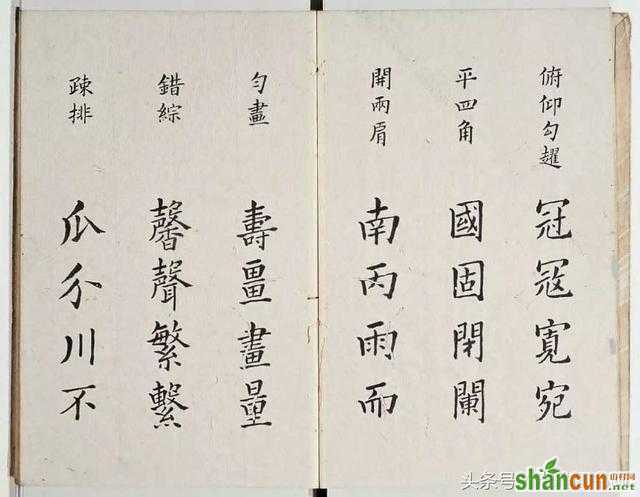 俯仰勾趯
冠冦寬宛
平四角
國固閉闌
開兩肩
南丙雨而
勻畫
壽畺畫量
錯綜
馨聲繁繫
疎排
瓜介川不
头条号
shancun
.net